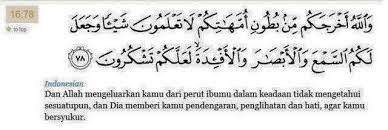 16:78
to top
وَاللَّهُ أَخْرَجَكُمْ مِنْ بُطُونِ أُمَّهَاتِكُمْ لَا تَعْلَمُونَ شَيْئًا وَجَعَلَ
لَكُمُ السَّمْعَ وَالْأَبْصَارَ وَالْأَفْئِدَةَ ۙ لَعَلَّكُمْ تَشْكُرُونَ ﴿٧٨﴾
Indonesian
Dan Allah mengeluarkan kamu dari perut ibumu dalam keadaan tidak mengetahui
sesuatupun, dan Dia memberi kamu pendengaran, penglihatan dan hati, agar kamu
bersyukur.